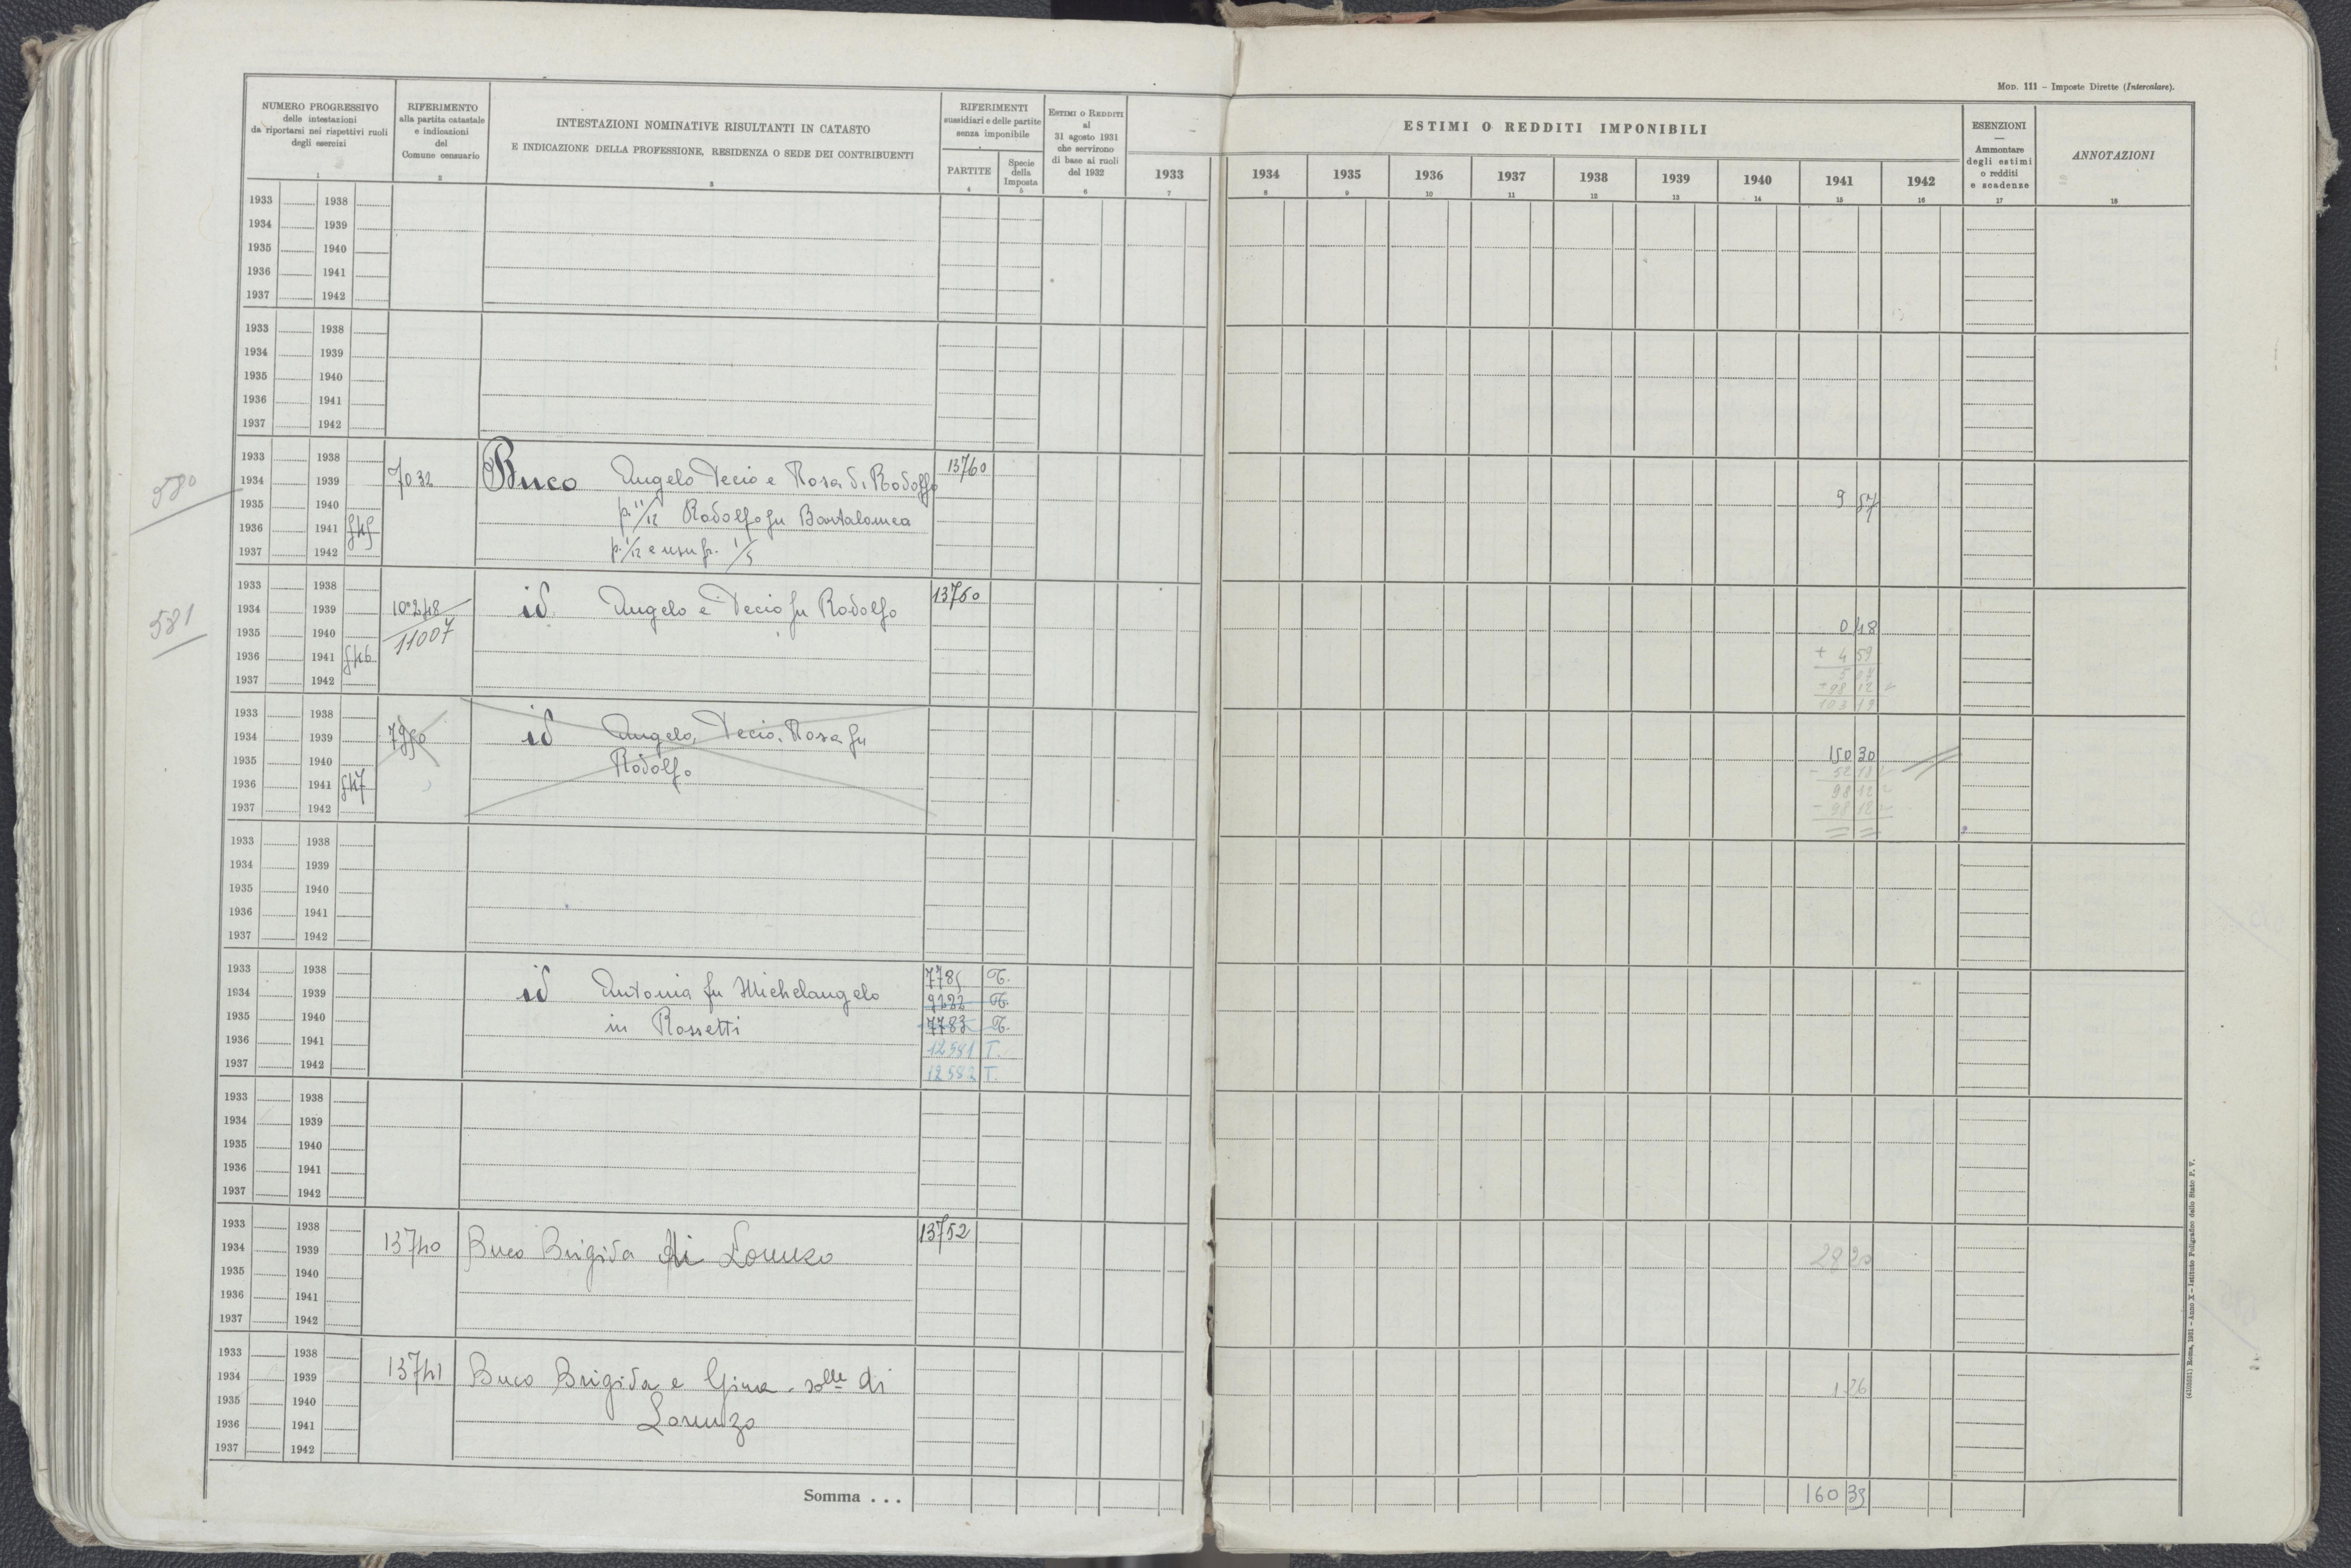 MOD. 111 – Imposte Dirette (Intercalare).
NUMERO PROGRESSIVO
delle intestazioni
da riportarsi nei rispettivi ruoli
degli esercizi
1
RIFERIMENTO
alla partita catastale
e indicazioni
del
Comune censuario
2
INTESTAZIONI NOMINATIVE RISULTANTI IN CATASTO
E INDICAZIONE DELLA PROFESSIONE, RESIDENZA O SEDE DEI CONTRIBUENTI
3
RIFERIMENTI
sussidiari e delle partite
senza imponibile
PARTITE
4
Specie
della
Imposta
5
ESTIMI O REDDITI
al
31 agosto 1931
che servirono
di base ai ruoli
del 1932
6
ESTIMI O REDDITI IMPONIBILI
1933 1934 1935 1936 1937 1938 1939 1940 1941 1942
7 8 9 10 11 12 13 14 15 16
ESENZIONI
—
Ammontare
degli estimi
o redditi
e scadenze
17
ANNOTAZIONI
18
1933 1938
1934 1939
1935 1940
1936 1941
1937 1942
1933 1938
1934 1939
1935 1940
1936 1941
1937 1942
580
1933 1938 13760
1934 1939 7032 Buco Angelo Decio e Rosa di Rodolfo
1935 1940 9 57
1936 1941 545 p. 11/12 Rodolfo fu Bartolomeo
1937 1942 p. 1/12 e usufr. 1/3
581
1933 1938 13760
1934 1939 10248 id Angelo e Decio fu Rodolfo
1935 1940 11007 0 48
1936 1941 546 + 4 59
1937 1942 5 07
+ 98 12
103 19
1933 1938
1934 1939 7950 id Angelo, Decio, Rosa fu
1935 1940 Rodolfo 150 30
1936 1941 547 - 52 18
1937 1942 98 12
- 98 12
1933 1938
1934 1939
1935 1940
1936 1941
1937 1942
1933 1938 7785 T.
1934 1939 id Antonia fu Michelangelo 9222 T.
1935 1940 in Rossetti 7783 T.
1936 1941 12581 T.
1937 1942 12582 T.
1933 1938
1934 1939
1935 1940
1936 1941
1937 1942
1933 1938 13752
1934 1939 13740 Buco Brigida di Lorenzo 28 20
1935 1940
1936 1941
1937 1942
1933 1938
1934 1939 13741 Buco Brigida e Gina - solle di 1 26
1935 1940
1936 1941 Lorenzo
1937 1942
Somma . . . 160 35
Roma, 1931 – Anno X – Istituto Poligrafico dello Stato P. V.